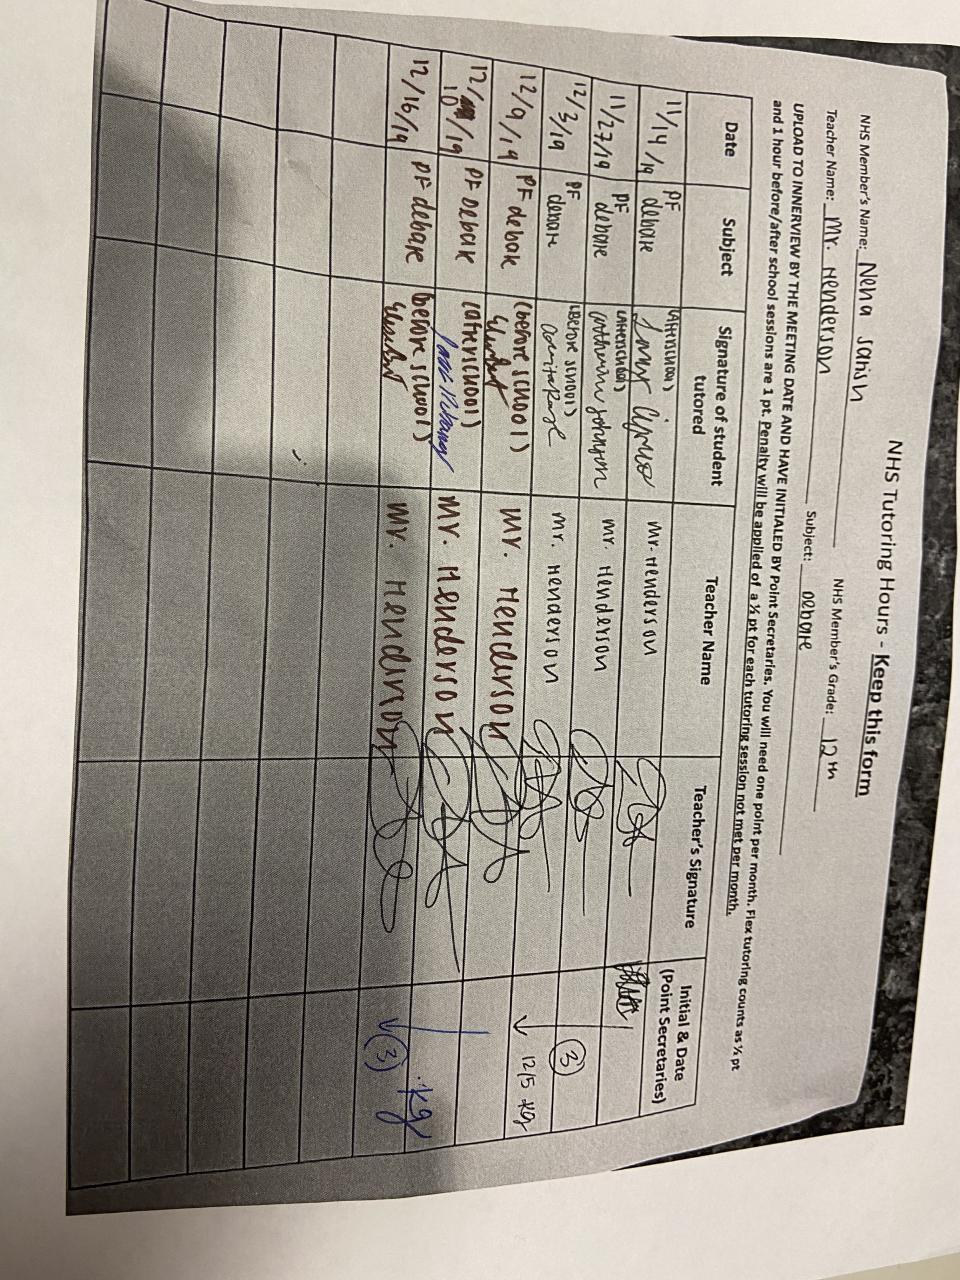 NHS Tutoring Hours - Keep this form
NHS Member's Name: Neha Satish NHS Member's Grade: 12th
Teacher Name: Mr. Henderson Subject: Debate
UPLOAD TO INNERVIEW BY THE MEETING DATE AND HAVE INITIALED BY Point Secretaries. You will need one point per month. Flex tutoring counts as ½ pt
and 1 hour before/after school sessions are 1 pt. Penalty will be applied of a ½ pt for each tutoring session not met per month.
Date Subject Signature of student tutored Teacher Name Teacher's Signature Initial & Date (Point Secretaries)
11/14/19 PF debate (Afterschool) Mr. Henderson
11/27/19 PF debate (Afterschool) Johnson Mr. Henderson
12/3/19 PF debate (Before school) Mr. Henderson 3
12/9/19 PF debate (before school) Mr. Henderson 12/5 kg
12/10/19 PF Debate (afterschool) Mr. Henderson
12/16/19 PF debate (before school) Mr. Henderson 3 kg